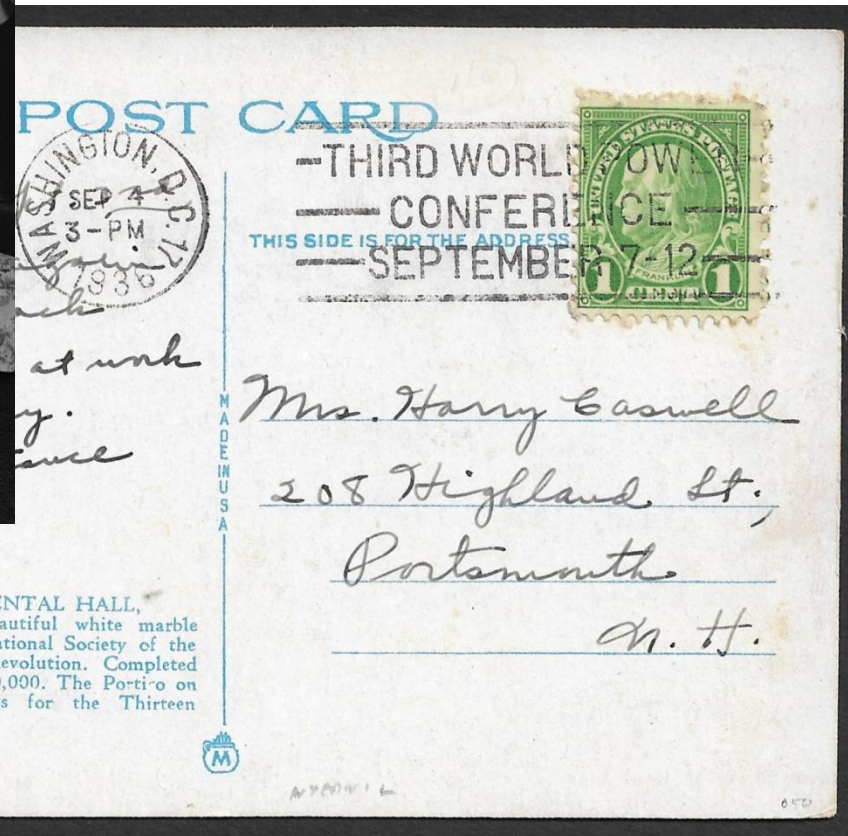 POST CARD
WASHINGTON, D.C. 17
SEP 4
3-PM
1936
THIRD WORLD POWER
CONFERENCE
SEPTEMBER 7-12
UNITED STATES POSTAGE
FRANKLIN
1 1
THIS SIDE IS FOR THE ADDRESS
at work
y.
MADE IN USA
Mrs. Harry Caswell
208 Highland St.,
Portsmouth
N. H.
ENTAL HALL,
autiful white marble
ational Society of the
evolution. Completed
0,000. The Portico on
s for the Thirteen
M